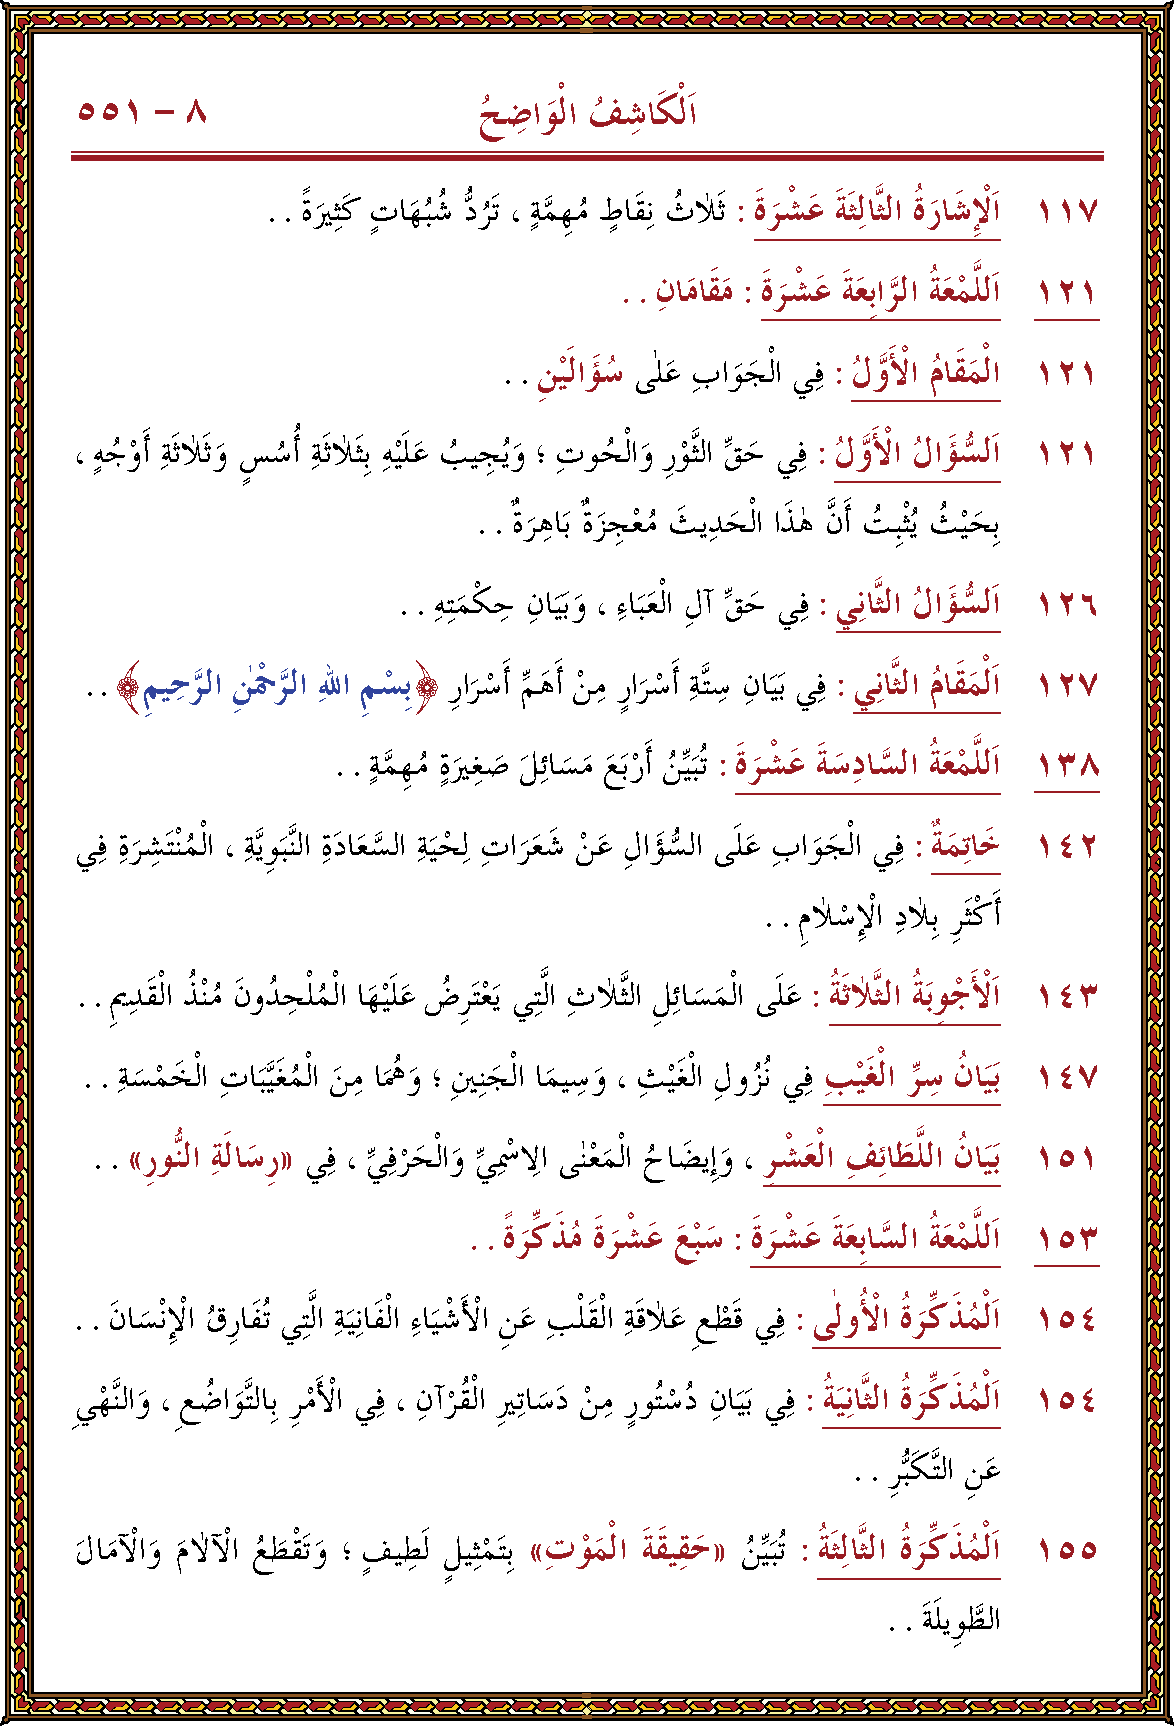 اَلْكَاشِفُ الْوَاضِحُ ٨ – ٥٥١
١١٧ اَلْإِشَارَةُ الثَّالِثَةَ عَشْرَةَ : ثَلَاثُ نِقَاطٍ مُهِمَّةٍ ، تَرُدُّ شُبُهَاتٍ كَثِيرَةً . .
١٢١ اَللَّمْعَةُ الرَّابِعَةَ عَشْرَةَ : مَقَامَانِ . .
١٢١ الْمَقَامُ الْأَوَّلُ : فِي الْجَوَابِ عَلٰى سُؤَالَيْنِ . .
١٢١ اَلسُّؤَالُ الْأَوَّلُ : فِي حَقِّ الثَّوْرِ وَالْحُوتِ ؛ وَيُجِيبُ عَلَيْهِ بِثَلَاثَةِ أُسُسٍ وَثَلَاثَةِ أَوْجُهٍ ،
بِحَيْثُ يُثْبِتُ أَنَّ هٰذَا الْحَدِيثَ مُعْجِزَةٌ بَاهِرَةٌ . .
١٢٦ اَلسُّؤَالُ الثَّانِي : فِي حَقِّ آلِ الْعَبَاءِ ، وَبَيَانِ حِكْمَتِهِ . .
١٢٧ اَلْمَقَامُ الثَّانِي : فِي بَيَانِ سِتَّةِ أَسْرَارٍ مِنْ أَهَمِّ أَسْرَارِ ﴿بِسْمِ اللهِ الرَّحْمٰنِ الرَّحِيمِ﴾ . .
١٣٨ اَللَّمْعَةُ السَّادِسَةَ عَشْرَةَ : تُبَيِّنُ أَرْبَعَ مَسَائِلَ صَغِيرَةٍ مُهِمَّةٍ . .
١٤٢ خَاتِمَةٌ : فِي الْجَوَابِ عَلَى السُّؤَالِ عَنْ شَعَرَاتِ لِحْيَةِ السَّعَادَةِ النَّبَوِيَّةِ ، الْمُنْتَشِرَةِ فِي
أَكْثَرِ بِلَادِ الْإِسْلَامِ . .
١٤٣ اَلْأَجْوِبَةُ الثَّلَاثَةُ : عَلَى الْمَسَائِلِ الثَّلَاثِ الَّتِي يَعْتَرِضُ عَلَيْهَا الْمُلْحِدُونَ مُنْذُ الْقَدِيمِ . .
١٤٧ بَيَانُ سِرِّ الْغَيْبِ فِي نُزُولِ الْغَيْثِ ، وَسِيمَا الْجَنِينِ ؛ وَهُمَا مِنَ الْمُغَيَّبَاتِ الْخَمْسَةِ . .
١٥١ بَيَانُ اللَّطَائِفِ الْعَشْرِ ، وَإِيضَاحُ الْمَعْنٰى الِاسْمِيِّ وَالْحَرْفِيِّ ، فِي «رِسَالَةِ النُّورِ» . .
١٥٣ اَللَّمْعَةُ السَّابِعَةَ عَشْرَةَ : سَبْعَ عَشْرَةَ مُذَكِّرَةً . .
١٥٤ اَلْمُذَكِّرَةُ الْأُولٰى : فِي قَطْعِ عَلَاقَةِ الْقَلْبِ عَنِ الْأَشْيَاءِ الْفَانِيَةِ الَّتِي تُفَارِقُ الْإِنْسَانَ . .
١٥٤ اَلْمُذَكِّرَةُ الثَّانِيَةُ : فِي بَيَانِ دُسْتُورٍ مِنْ دَسَاتِيرِ الْقُرْآنِ ، فِي الْأَمْرِ بِالتَّوَاضُعِ ، وَالنَّهْيِ
عَنِ التَّكَبُّرِ . .
١٥٥ اَلْمُذَكِّرَةُ الثَّالِثَةُ : تُبَيِّنُ «حَقِيقَةَ الْمَوْتِ» بِتَمْثِيلٍ لَطِيفٍ ؛ وَتَقْطَعُ الْآلَامَ وَالْآمَالَ
الطَّوِيلَةَ . .